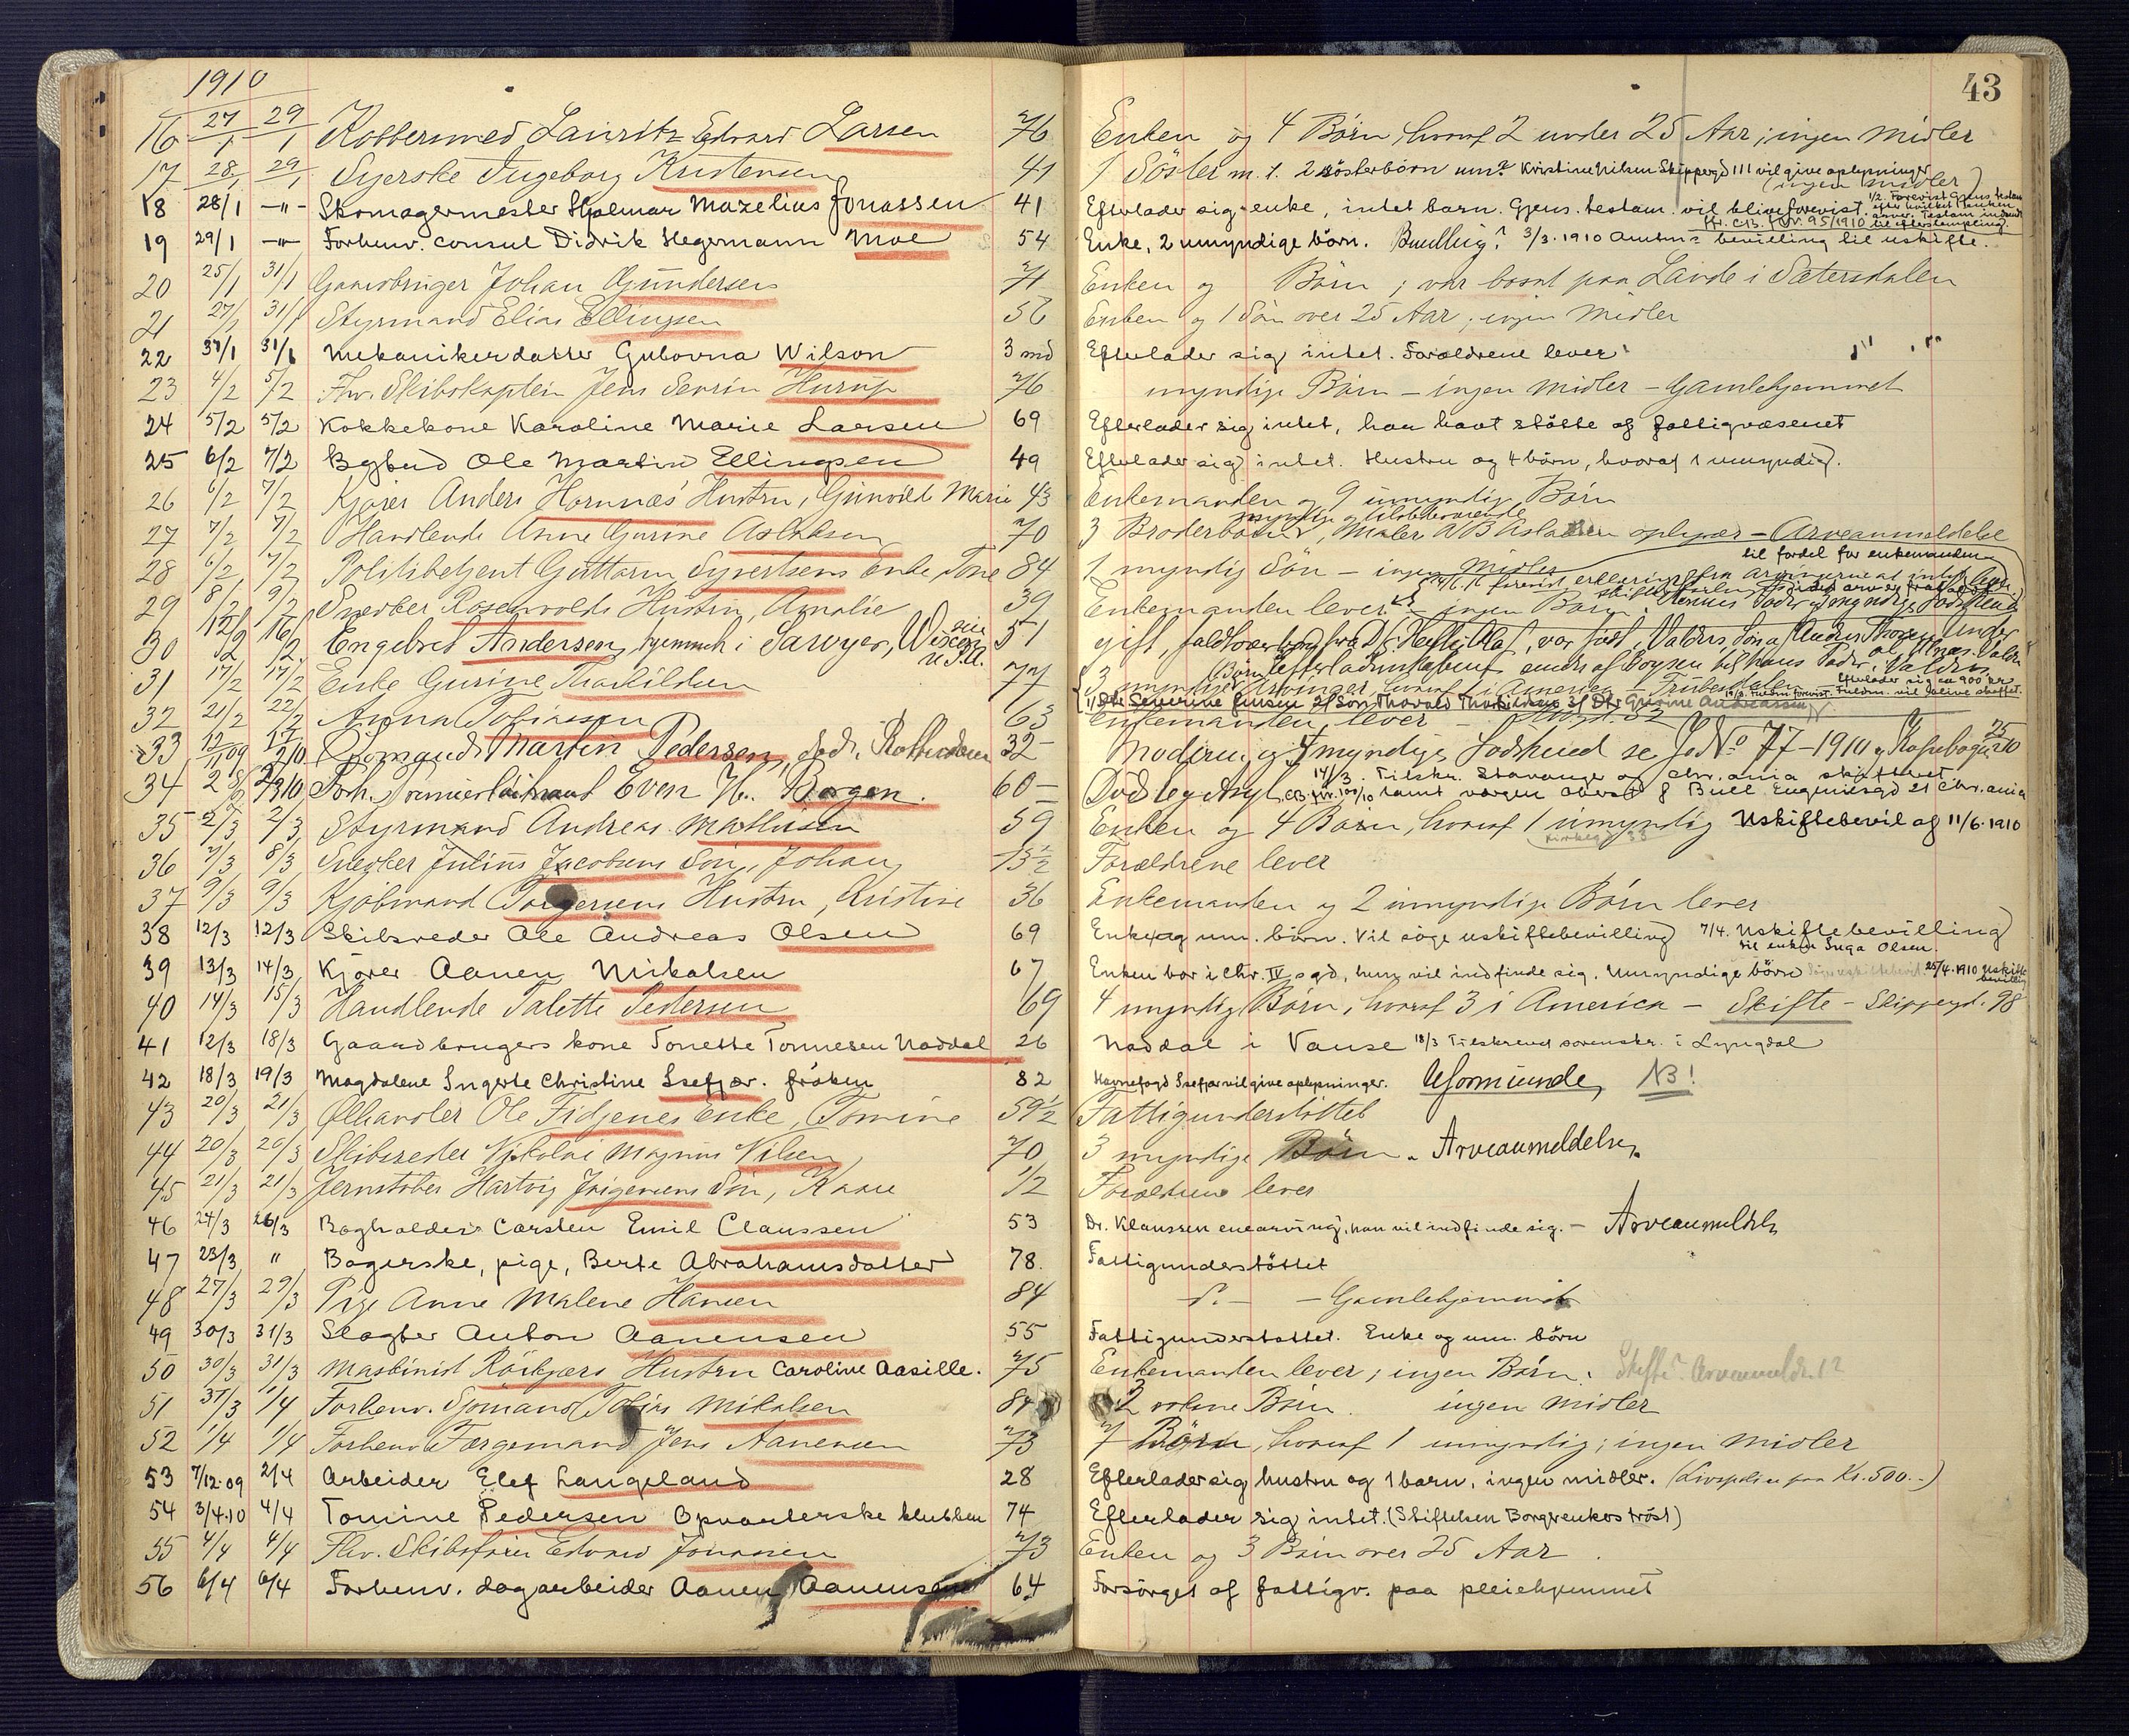 1910
43
16 27/1 29/1 Kobbersmed Lauritz Edvard Larsen 76 Enken og 4 Børn, hvoraf 2 under 25 Aar; ingen Midler
17 28/1 29/1 Syerske Ingeborg Kristensen 41 1 Søster m. f. 2 søsterbörn um. Kristine Nilsen Skippergd 111 vil give oplysninger
(ingen midler)
18 28/1 -"- Skomagermester Hjalmar Mazelius Jonassen 41 Efterlader sig enke, intet barn. Gjens. testam. vil blive forevist.
19 29/1 -"- Forhenv. consul Didrik Hegermann Moe 54 Enke, 2 umyndige börn. Bevilling? 3/3. 1910 Amtm. bevilling til uskifte.
20 25/1 31/1 Gaardbruger Johan Gundersen 71 Enken og Børn; var bosat paa Lande i Sætersdalen
21 27/1 31/1 Styrmand Elias Ellingsen 56 Enken og 1 Søn over 25 Aar; ingen Midler
22 31/1 31/1 Mekanikerdatter Gubovna Wilson 3 md Efterlader sig intet. Forældrene lever
23 4/2 5/2 Fhv. Skibskaptein Jens Severin Hurup 76 myndige Børn - ingen Midler - Gamlehjemmet
24 5/2 5/2 Kokkekone Karoline Marie Larsen 69 Efterlader sig intet, har havt stötte af fattigvæsenet
25 6/2 7/2 Bybud Ole Martin Ellingsen 49 Efterlader sig intet. Hustru og 4 börn, hvoraf 1 umyndig.
26 6/2 7/2 Kjører Anders Hornnæs' Hustru, Gunvild Marie 43 Enkemanden og 9 umyndige Børn
27 7/2 7/2 Handlende Anne Gurine Aslaksen 70 3 Broderbørn, Maler Aslaksen oplyser - Arveanmeldelse
28 6/2 7/2 Politibetjent Guttorm Syvertsens Enke, Tone 84 1 myndig Søn - ingen Midler
til fordel for enkemanden
29 8/2 9/2 Snedker Rosenvolds Hustru, Amalie 39 Enkemanden lever - ingen Børn
30 12/2 16/2 Engebret Andersen, hjemmeh. i Sawyer, Wisconsin U.S.A. 51 gift,
31 17/2 17/2 Enke Gurine Thorkildsen 77 3 myndige Arvinger, hvoraf 1 i America
1/ Dtr Severine Jensen 2/ Søn Thorvald Thorkildsen 3/ Dtr Gurine Andreassen
32 21/2 22/2 Anna Tobiassen 63 Enkemanden lever
33 12/11 09 1/2 10 Sømand Martin Pedersen, død i Rotterdam 32 Moderen og 4 myndige Sødskend se Jo No 77-1910
34 28/2 2/3 10 Even H. Bogen. 60 Död leg Asyl 14/3. Tilskr. Stavanger og Chr.ania skifteret
samt værgen oberst J Bull Eugeniesgd 21 Chr.ania
35 2/3 2/3 Styrmand Andreas Mathisen 59 Enken og 4 Børn, hvoraf 1 umyndig Uskiftebevil af 11/6. 1910
36 7/3 8/3 Snedker Julius Jacobsens Søn, Johan 13½ Forældrene lever
37 9/3 9/3 Kjøbmand Torgersens Hustru, Kristine 36 Enkemanden og 2 umyndige Børn lever
38 12/3 12/3 Skibsreder Ole Andreas Olsen 69 Enke og um. börn. Vil söge uskiftebevilling 7/4. Uskiftebevilling
til enken Inga Olsen.
39 13/3 14/3 Kjører Aanen Nikolsen 67 Enken bor i Chr. IV s gd, hun vil indfinde sig. Umyndige börn 25/4. 1910 Uskiftebevilling
40 14/3 15/3 Handlende Talette Pedersen 69 4 myndige Børn, hvoraf 3 i America - Skifte - Skippergd. 98
41 12/3 18/3 Gaardbrugers kone Tonette Tonnesen Naddal 26 Naddal i Vanse 18/3 Tilskrevet sorenskr. i Lyngdal
42 18/3 19/3 Magdalene Ingerte Christine Isefjær. fröken 82 Havnefogd Isefjær vil give oplysninger. Uformuende, NB!
43 20/3 21/3 Ølhandler Ole Fidjenes Enke, Tomine 59½ Fattigunderstøttet
44 20/3 20/3 Skibsreder Nikolai Magnus Nilsen 70 3 myndige Børn. Arveanmeldelse.
45 21/3 21/3 Jernstøber Hartvig Jørgensens Søn, Kaare ½ Forældrene lever
46 24/3 26/3 Bogholder Carsten Emil Claussen 53 Dr. Klaussen enearving, han vil indfinde sig. - Arveanmeldels
47 23/3 " Bagerske, pige, Berte Abrahamsdatter 78. Fattigunderstöttet
48 27/3 29/3 Pige Anne Malene Hansen 84 d.- - Gamlehjemmet
49 30/3 31/3 Slagter Anton Aanensen 55 Fattigunderstöttet. Enke og um. börn
50 30/3 31/3 Maskinist Röikjærs Hustru Caroline Aasille. 75 Enkemanden lever; ingen Børn.
51 31/3 1/4 Forhenv. Sømand Tobias Mikalsen 84 2 voksne Børn. ingen Midler
52 1/4 1/4 Forhenv. Færgemand Jens Aanensen 73 7 Børn, hvoraf 1 umyndig; ingen Midler
53 7/12.09 2/4 Arbeider Elef Langeland 28 Efterlader sig hustru og 1 barn, ingen midler. (Livspolise paa Kr. 500.-)
54 3/4.10 4/4 Tomine Pedersen Opvarterske klubben 74 Efterlader sig intet. (Stiftelsen Borgerenkes tröst)
55 4/4 4/4 Fhv. Skibsfører Edvard Jonassen 73 Enken og 3 Børn over 25 Aar.
56 6/4 6/4 Forhenv. dagarbeider Aanen Aanensen 64 Forsörget af fattigv. paa pleiehjemmet